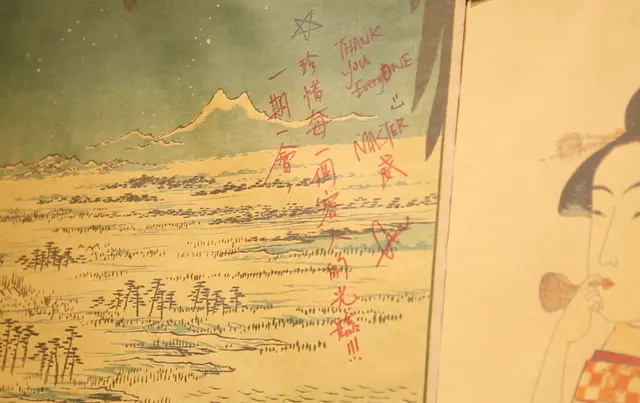 一期一會,
珍惜每一個客人的光臨!!!
THANK
YOU
EveryONE
MASTER